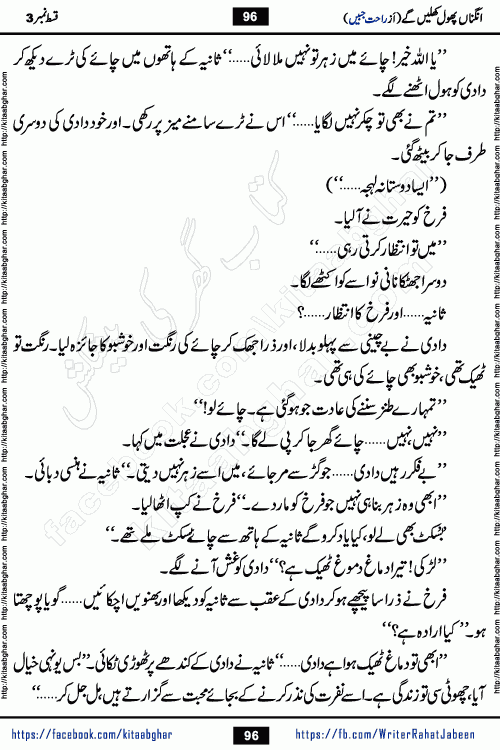 انگناں پھول کھلیں گے (از راحت جبیں)
96
قسط نمبر 3
’’یا اللہ خیر! چائے میں زہر تو نہیں ملا لائی......‘‘ ثانیہ کے ہاتھوں میں چائے کی ٹرے دیکھ کر
دادی کو ہول اٹھنے لگے۔
’’تم نے بھی تو چکر نہیں لگایا......‘‘ اس نے ٹرے سامنے میز پر رکھی۔ اور خود دادی کی دوسری
طرف جا کر بیٹھ گئی۔
(’’ایسا دوستانہ لہجہ......‘‘)
فرخ کو حیرت نے آ لیا۔
’’میں تو انتظار کرتی رہی......‘‘
دوسرا جھٹکا نانی نواسے کو اکٹھے لگا۔
ثانیہ...... اور فرخ کا انتظار......؟
دادی نے بے چینی سے پہلو بدلا، اور ذرا جھک کر چائے کی رنگت اور خوشبو کا جائزہ لیا۔ رنگت تو
ٹھیک تھی، خوشبو بھی چائے کی ہی تھی۔
’’تمہارے طنز سننے کی عادت جو ہو گئی ہے۔ چائے لو!‘‘
’’نہیں، نہیں...... چائے گھر جا کر پی لے گا۔‘‘ دادی نے عجلت میں کہا۔
’’بے فکر رہیں دادی...... جو گڑ سے مر جائے، میں اسے زہر نہیں دیتی۔‘‘ ثانیہ نے ہنسی دبائی۔
’’ابھی وہ زہر بنا ہی نہیں جو فرخ کو مار دے۔‘‘ فرخ نے کپ اٹھا لیا۔
’’بسکٹ بھی لے لو، کیا یاد کرو گے ثانیہ کے ہاتھ سے چائے بسکٹ ملے تھے۔‘‘
’’لڑکی! تیرا دماغ دموغ ٹھیک ہے؟‘‘ دادی کو غش آنے لگے۔
فرخ نے ذرا سا پیچھے ہو کر دادی کے عقب سے ثانیہ کو دیکھا اور بھنویں اچکائیں...... گویا پوچھتا
ہو۔ ’’کیا ارادہ ہے؟‘‘
’’ابھی تو دماغ ٹھیک ہوا ہے دادی......‘‘ ثانیہ نے دادی کے کندھے پر ٹھوڑی ٹکائی۔ ’’بس یونہی خیال
آیا، چھوٹی سی تو زندگی ہے۔ اسے نفرت کی نذر کرنے کے بجائے محبت سے گزارتے ہیں، مل جل کر......‘‘
https://facebook.com/kitaabghar
96
https://fb.com/WriterRahatJabeen
http://kitaabghar.com
کتاب گھر کی پیشکش
facebook.com/kitaabghar